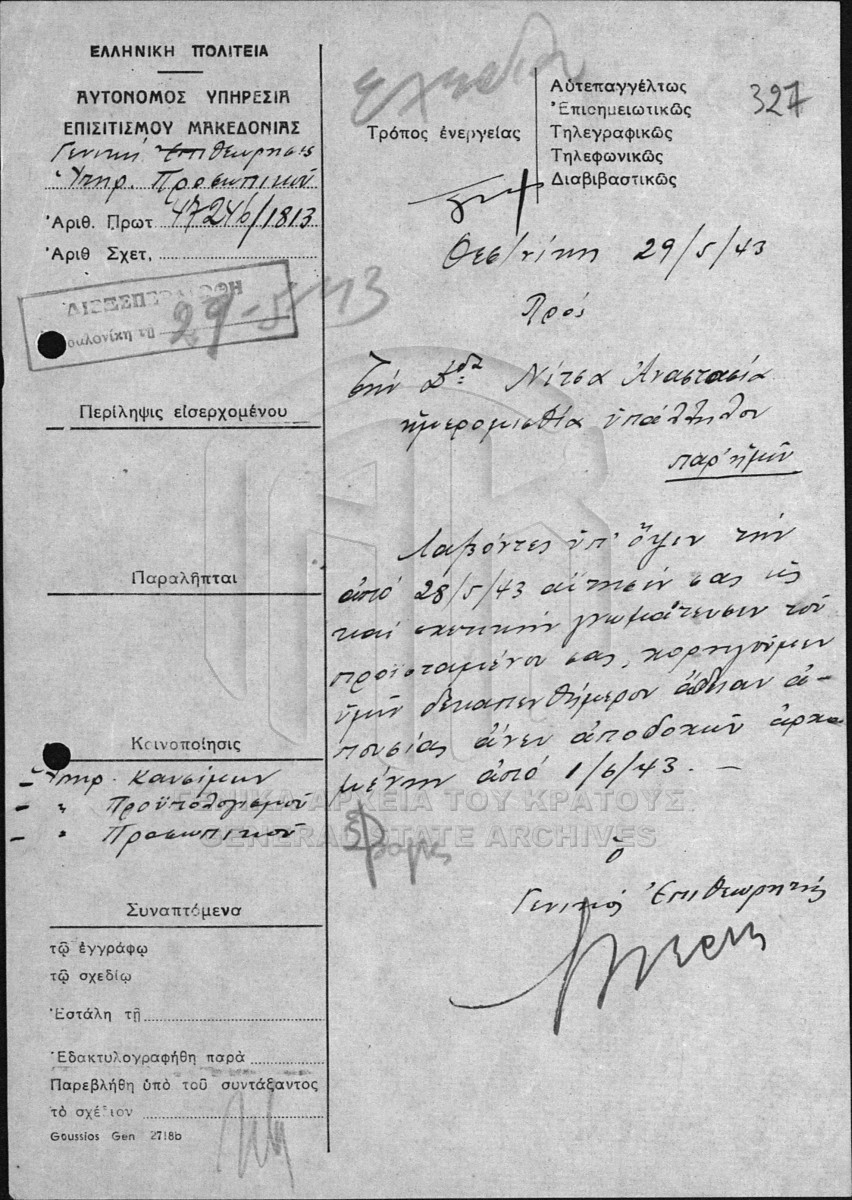 ΕΛΛΗΝΙΚΗ ΠΟΛΙΤΕΙΑ
ΑΥΤΟΝΟΜΟΣ ΥΠΗΡΕΣΙΑ
ΕΠΙΣΙΤΙΣΜΟΥ ΜΑΚΕΔΟΝΙΑΣ
Γενική Ἐπιθεώρησις
Ὑπηρ. Προσωπικοῦ
Ἀριθ. Πρωτ 47246/1813
Ἀριθ Σχετ.
29-5-43
Περίληψις εἰσερχομένου
Παραλῆπται
Κοινοποίησις
– Ὑπηρ. Καυσίμων
– " Προϋπολογισμοῦ
– " Προσωπικοῦ
Συναπτόμενα
τῷ ἐγγράφῳ
τῷ σχεδίῳ
Ἐστάλη τῇ
Ἐδακτυλογραφήθη παρὰ
Παρεβλήθη ὑπὸ τοῦ συντάξαντος
τὸ σχέδιον
Goussios Gen 2718b
Σχέδιον
327
Τρόπος ἐνεργείας
Αὐτεπαγγέλτως
Ἐπισημειωτικῶς
Τηλεγραφικῶς
Τηλεφωνικῶς
Διαβιβαστικῶς
Θεσ/νίκη 29/5/43
Πρός
Τὴν Δ/δα Νίτσα Ἀναστασία
ἡμερομισθία ὑπάλληλον
παρ' ἡμῖν
Λαβόντες ὑπ' ὄψιν τὴν
ἀπό 28/5/43 αἴτησίν σας ὡς
καί σχετικήν γνωμάτευσιν τοῦ
προϊσταμένου σας, χορηγοῦμεν
ὑμῖν δεκαπενθήμερον ἄδειαν ἀ-
πουσίας ἄνευ ἀποδοχῶν ἀρχο
μένην ἀπό 1/6/43. –
ὁ
Γενικός Ἐπιθεωρητής
ΓΕΝΙΚΑ ΑΡΧΕΙΑ ΤΟΥ ΚΡΑΤΟΥΣ
GENERAL STATE ARCHIVES